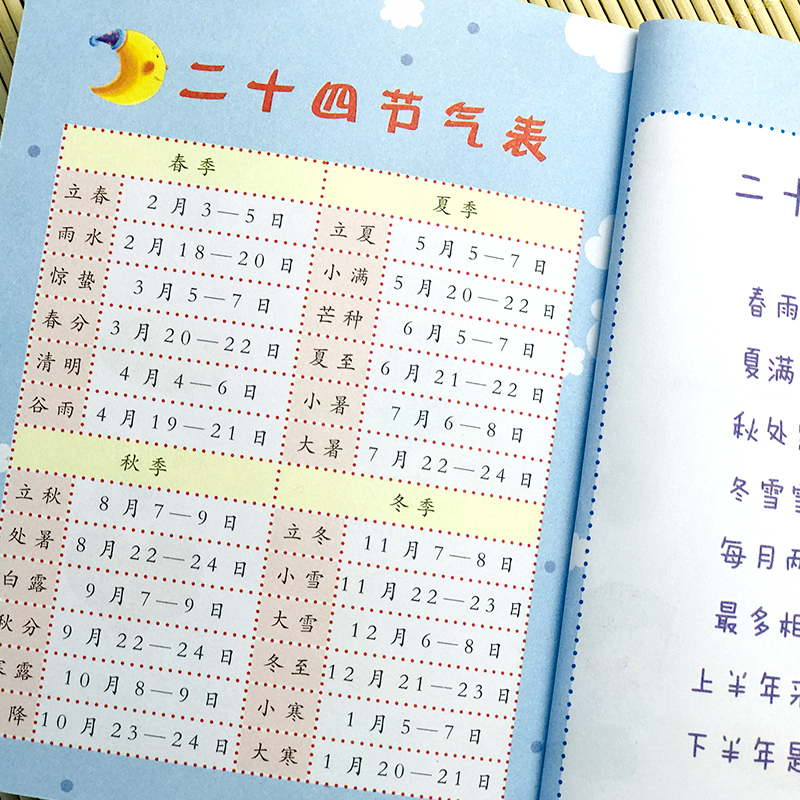 二十四节气表
春季
立春 2月3—5日
雨水 2月18—20日
惊蛰 3月5—7日
春分 3月20—22日
清明 4月4—6日
谷雨 4月19—21日
夏季
立夏 5月5—7日
小满 5月20—22日
芒种 6月5—7日
夏至 6月21—22日
小暑 7月6—8日
大暑 7月22—24日
秋季
立秋 8月7—9日
处暑 8月22—24日
白露 9月7—9日
秋分 9月22—24日
露 10月8—9日
降 10月23—24日
冬季
立冬 11月7—8日
小雪 11月22—23日
大雪 12月6—8日
冬至 12月21—23日
小寒 1月5—7日
大寒 1月20—21日
二十
春雨
夏满
秋处
冬雪
每月两
最多相
上半年
下半年是